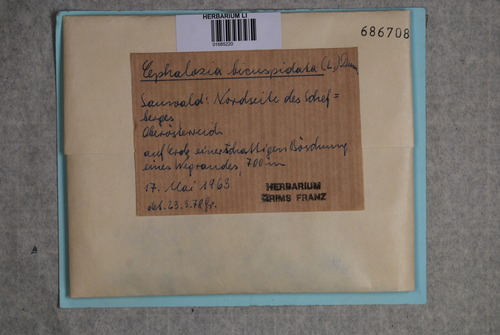 HERBARIUM LI
01685220
686708
Cephalozia bicuspidata (L.) Dum
Sauwald: Nordseite des Schef=
berges
Oberösterreich
auf Erde einer schattigen Böschung
eines Wegrandes, 700 m
17. Mai 1963
det. 23.3.78 Gr.
HERBARIUM
GRIMS FRANZ